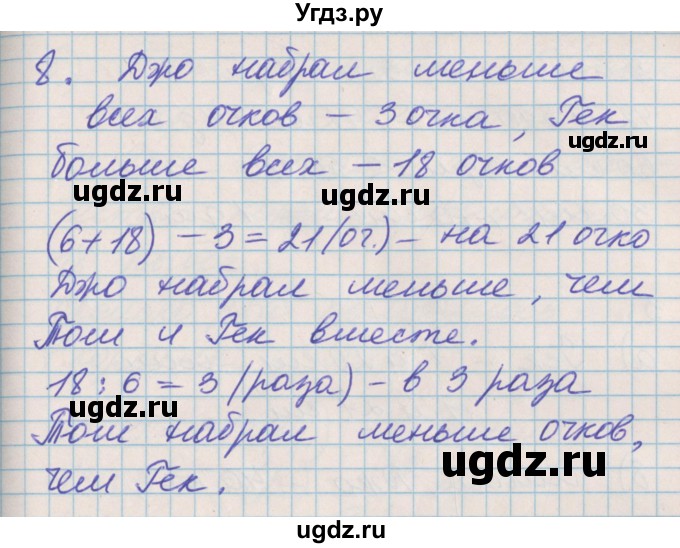 Угдз.ру
8. Джо набрал меньше
всех очков – 3 очка, Гек
ugdz.ru
больше всех – 18 очков
ugdz.ru ugdz.ru
(6+18) – 3 = 21 (оч.) – на 21 очко
Джо набрал меньше, чем
ugdz.ru ugdz.ru
Том и Гек вместе.
18 : 6 = 3 (раза) – в 3 раза
ugdz.ru
Том набрал меньше очков,
ugdz.ru
чем Гек.
ugdz.ru